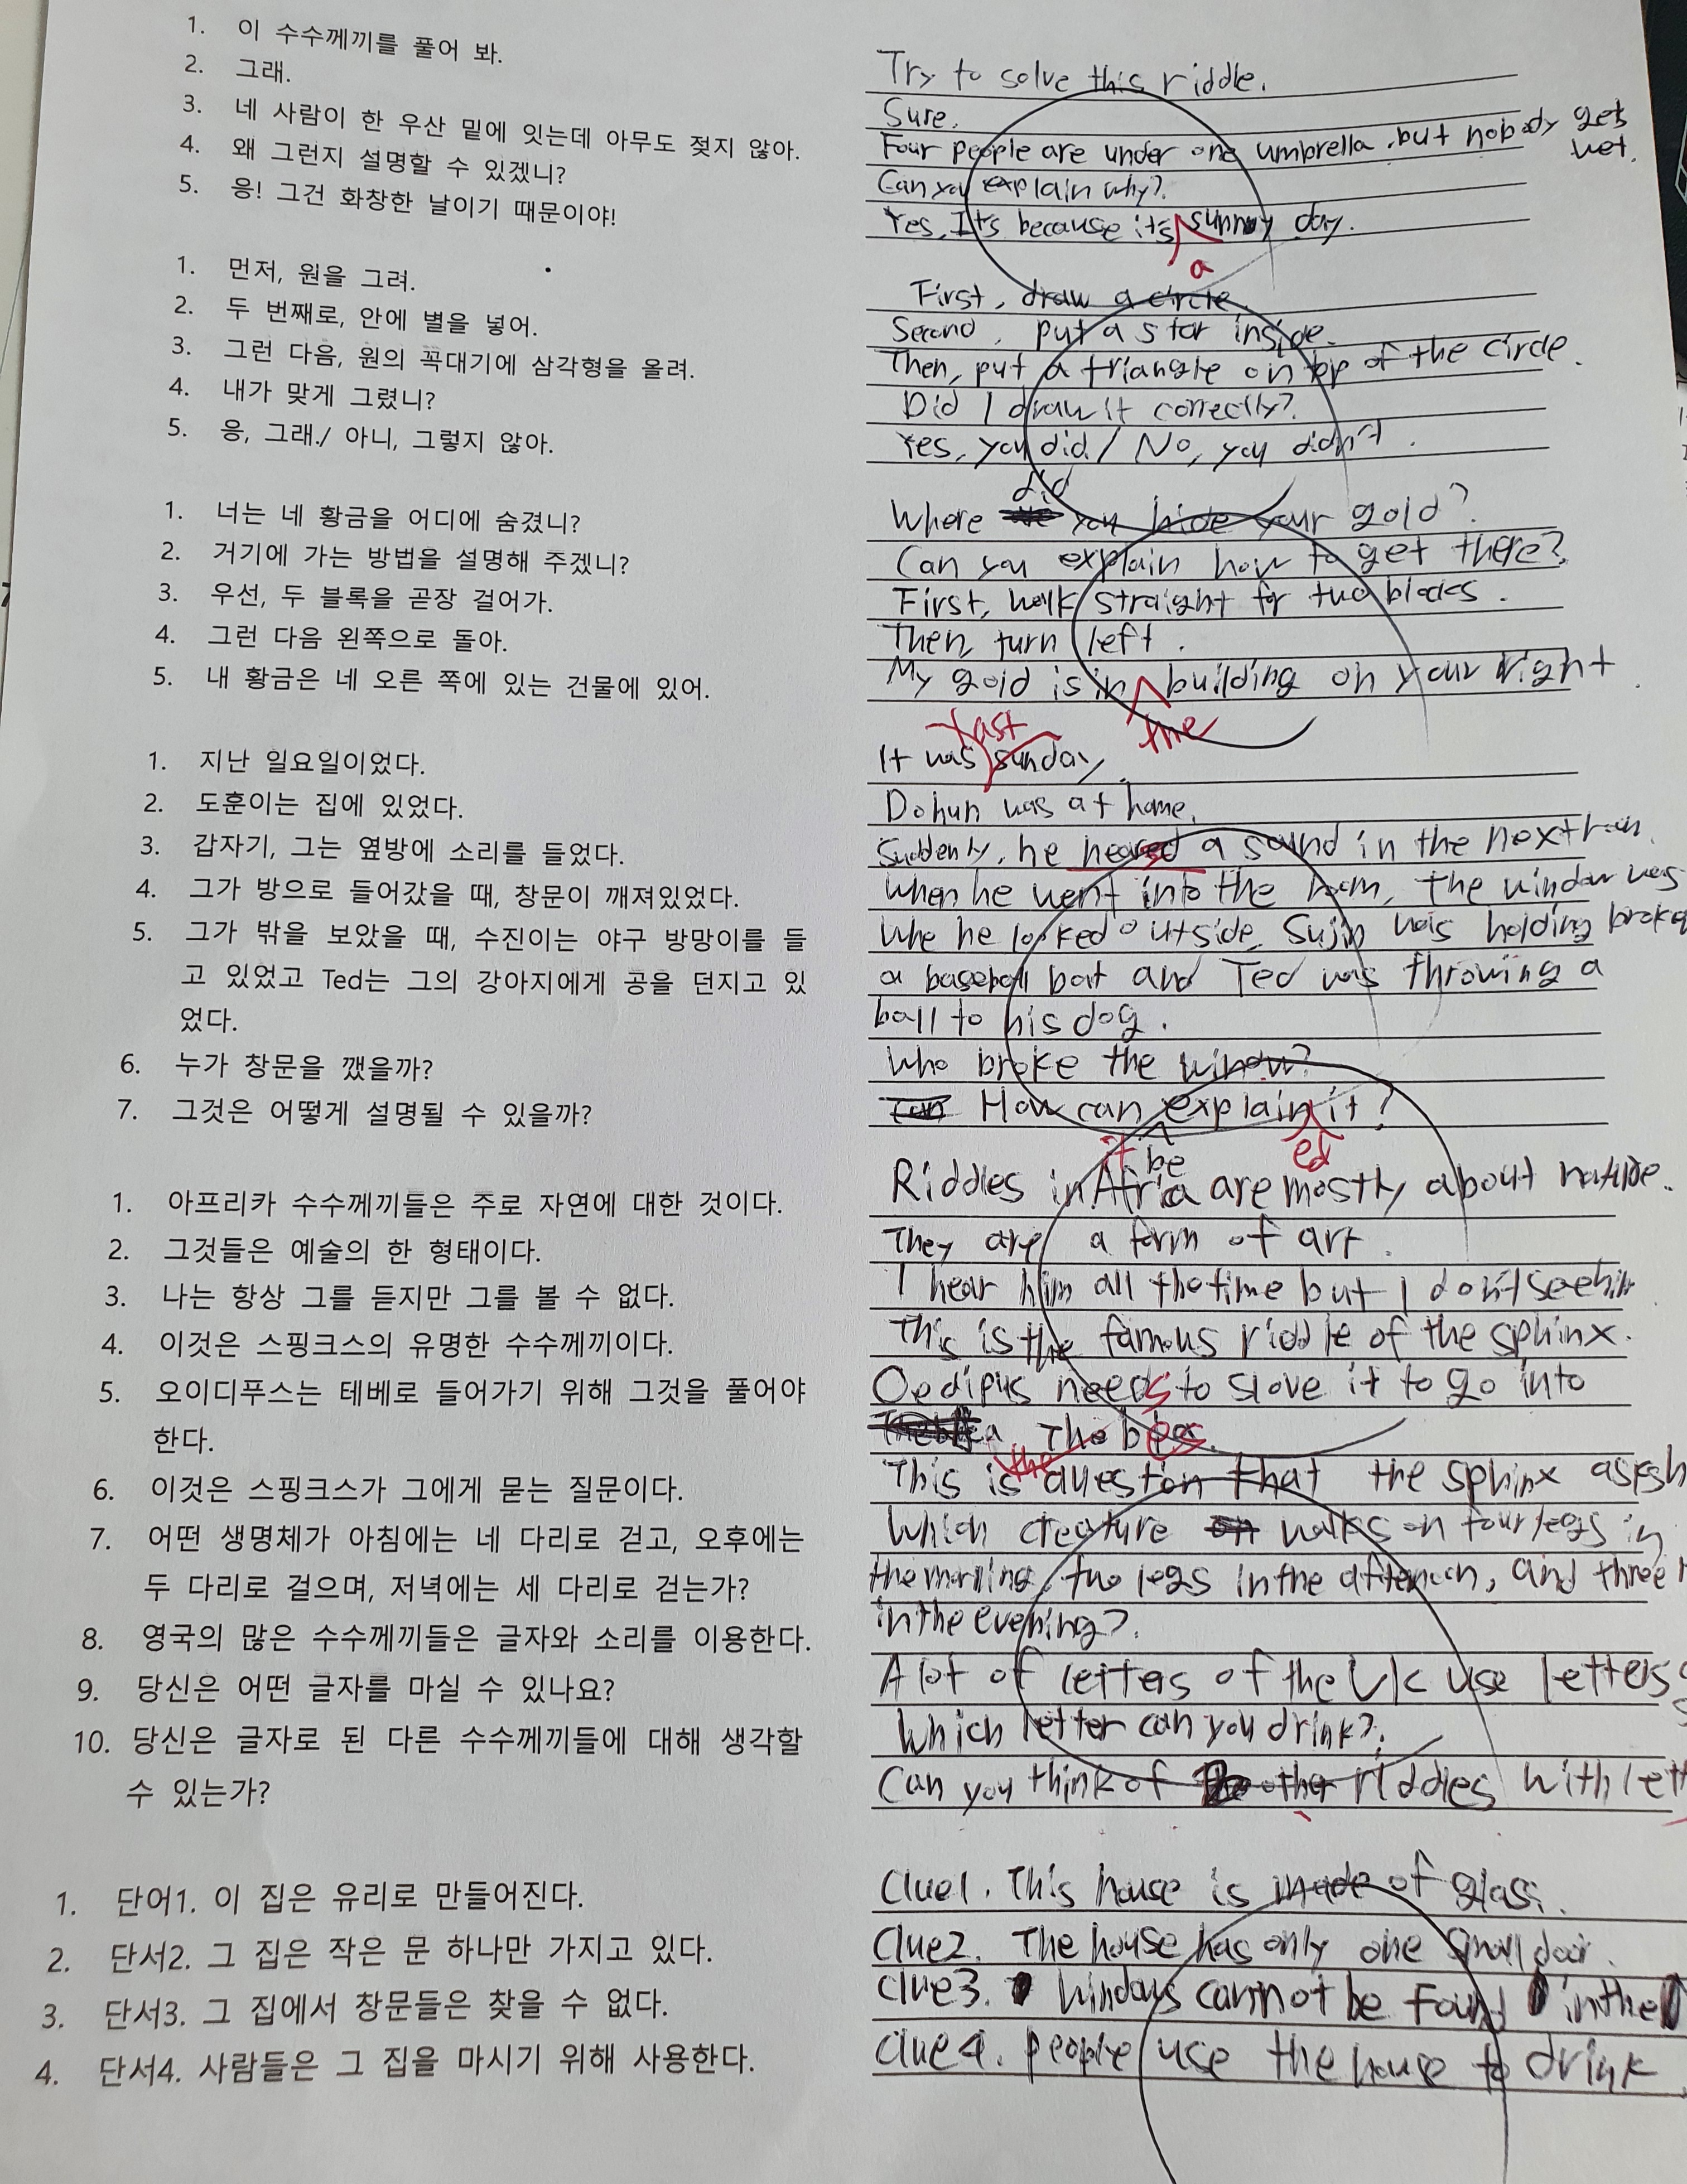 1. 이 수수께끼를 풀어 봐.
2. 그래.
3. 네 사람이 한 우산 밑에 잇는데 아무도 젖지 않아.
4. 왜 그런지 설명할 수 있겠니?
5. 응! 그건 화창한 날이기 때문이야!
Try to solve this riddle.
Sure.
Four people are under one umbrella, but nobody gets
wet.
Can you explain why?
Yes, It's because it's sunny day.
a
1. 먼저, 원을 그려.
2. 두 번째로, 안에 별을 넣어.
3. 그런 다음, 원의 꼭대기에 삼각형을 올려.
4. 내가 맞게 그렸니?
5. 응, 그래./ 아니, 그렇지 않아.
First, draw a circle.
Second, put a star inside.
Then, put a triangle on top of the circle.
Did I draw it correctly?
Yes, you did. / No, you didn't.
1. 너는 네 황금을 어디에 숨겼니?
2. 거기에 가는 방법을 설명해 주겠니?
3. 우선, 두 블록을 곧장 걸어가.
4. 그런 다음 왼쪽으로 돌아.
5. 내 황금은 네 오른 쪽에 있는 건물에 있어.
did
Where you hide your gold?
Can you explain how to get there?
First, walk straight for two blocks.
Then, turn left.
My gold is in building on your right.
the
1. 지난 일요일이었다.
2. 도훈이는 집에 있었다.
3. 갑자기, 그는 옆방에 소리를 들었다.
4. 그가 방으로 들어갔을 때, 창문이 깨져있었다.
5. 그가 밖을 보았을 때, 수진이는 야구 방망이를 들
고 있었고 Ted는 그의 강아지에게 공을 던지고 있
었다.
6. 누가 창문을 깼을까?
7. 그것은 어떻게 설명될 수 있을까?
last
It was sunday.
Dohun was at home.
Suddenly, he heared a sound in the next room.
When he went into the room, the window was
broke
Whe he looked outside, Sujin was holding
a baseball bat and Ted was throwing a
ball to his dog.
Who broke the window?
How can explain it?
it be ed
1. 아프리카 수수께끼들은 주로 자연에 대한 것이다.
2. 그것들은 예술의 한 형태이다.
3. 나는 항상 그를 듣지만 그를 볼 수 없다.
4. 이것은 스핑크스의 유명한 수수께끼이다.
5. 오이디푸스는 테베로 들어가기 위해 그것을 풀어야
한다.
6. 이것은 스핑크스가 그에게 묻는 질문이다.
7. 어떤 생명체가 아침에는 네 다리로 걷고, 오후에는
두 다리로 걸으며, 저녁에는 세 다리로 걷는가?
8. 영국의 많은 수수께끼들은 글자와 소리를 이용한다.
9. 당신은 어떤 글자를 마실 수 있나요?
10. 당신은 글자로 된 다른 수수께끼들에 대해 생각할
수 있는가?
Riddles in Africa are mostly about nature.
They are a form of art.
I hear him all the time but I don't see him
This is the famous riddle of the sphinx.
Oedipus needs to slove it to go into
Thebes.
the
This is question that the sphinx asks
Which creature walks on four legs in
the morning, two legs in the afternoon, and three
in the evening?
A lot of letters of the UK use letters
Which letter can you drink?
Can you think of other riddles with lett
1. 단어1. 이 집은 유리로 만들어진다.
2. 단서2. 그 집은 작은 문 하나만 가지고 있다.
3. 단서3. 그 집에서 창문들은 찾을 수 없다.
4. 단서4. 사람들은 그 집을 마시기 위해 사용한다.
Clue1. This house is made of glass.
Clue2. The house has only one small door.
Clue3. Windows cannot be found in the
Clue4. people use the house to drink.